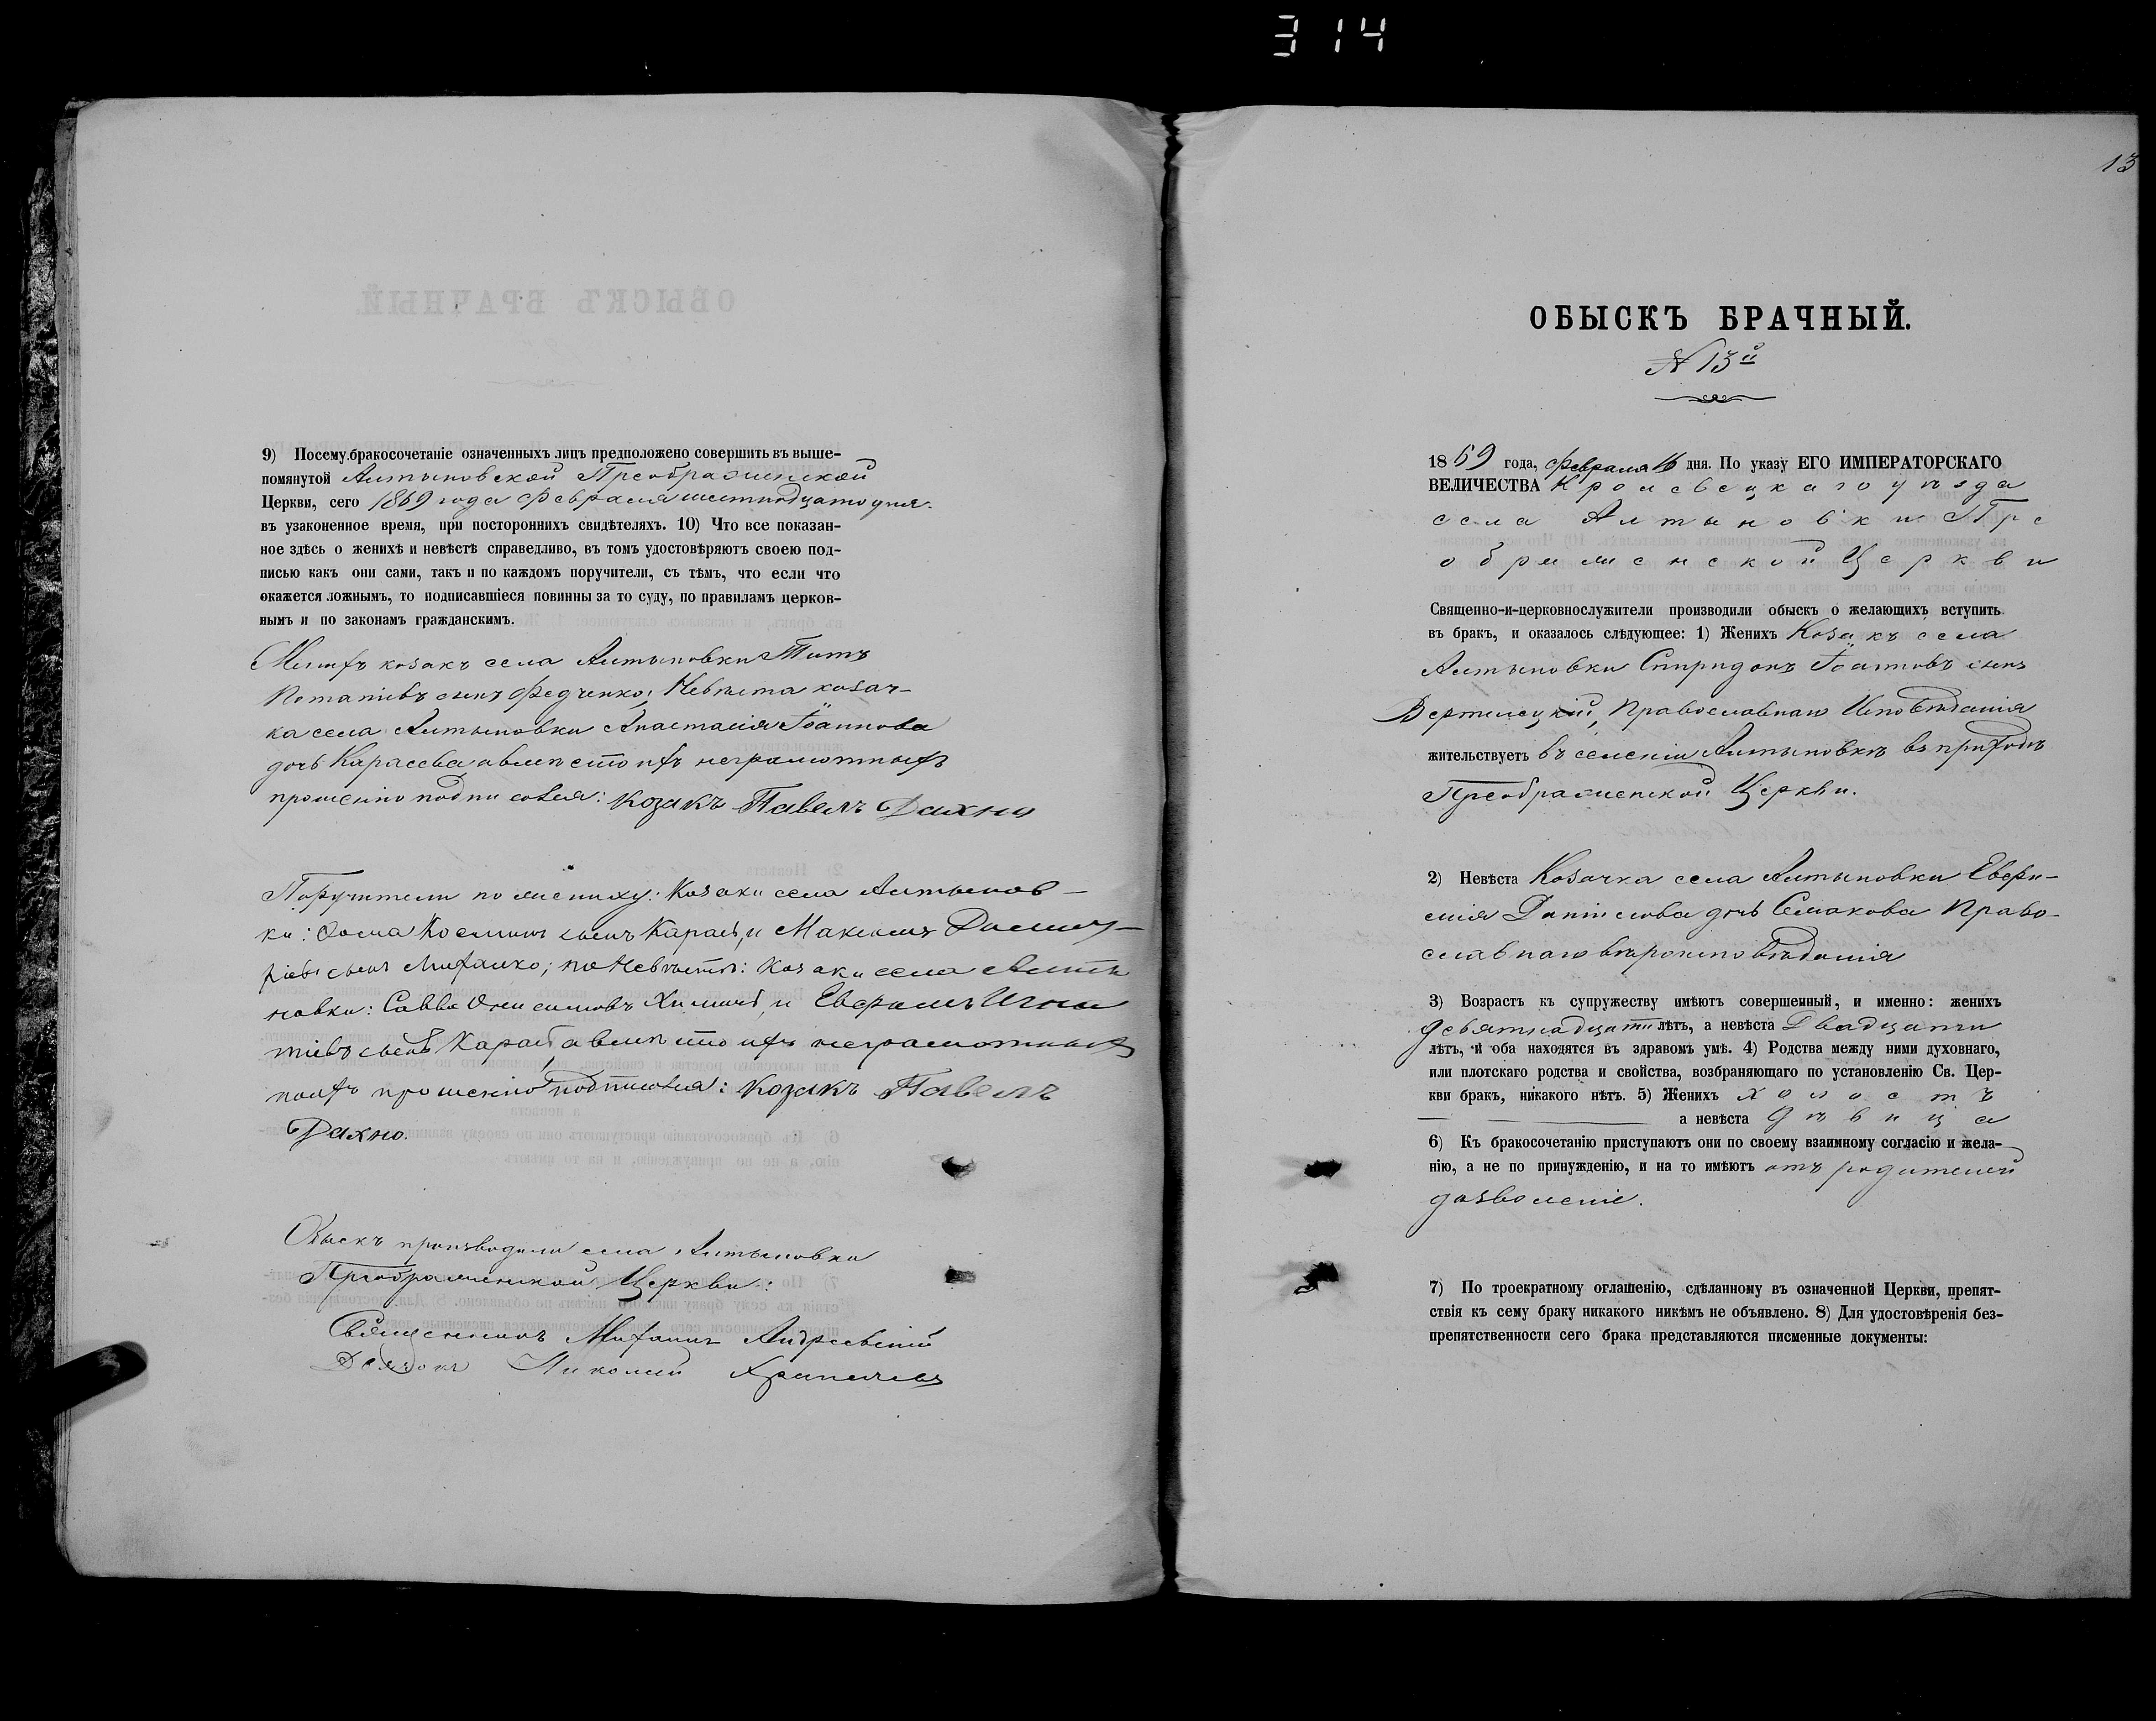 314
9) Посему бракосочетаніе означенныхъ лицъ предположено совершить въ выше-
помянутой Алтыновской Преображенской
Церкви, сего 1869 года Февраля шестнадцатого дня.
въ узаконенное время, при постороннихъ свидѣтеляхъ. 10) Что все показан-
ное здѣсь о женихѣ и невѣстѣ справедливо, въ томъ удостовѣряютъ своею под-
писью какъ они сами, такъ и по каждомъ поручители, съ тѣмъ, что если что
окажется ложнымъ, то подписавшіеся повинны за то суду, по правиламъ церков-
нымъ и по законамъ гражданскимъ.
Женихъ козакъ села Алтыновки Титъ
Потапіевъ сынъ Федченко, Невѣста козач-
ка села Алтыновки Анастасія Іоаннова
дочь Карасева, а вмѣсто ихъ неграмотныхъ
прошенію подписался: Козакъ Павелъ Дахно
Поручители по жениху: Козаки села Алтынов-
ки: Фома Косминъ сынъ Карась, и Максимъ Димит-
ріевъ сынъ Михалко; по Невѣстѣ: Козаки села Алты
новки: Савва Онисимовъ Химичъ, и Евфимъ Игна
тіевъ сынъ Карась, а вмѣсто ихъ неграмотныхъ
по ихъ прошенію подписался: Козакъ Павелъ
Дахно.
Обыскъ производили села Алтыновки
Преображенской Церкви:
Священникъ Михаилъ Андреевскій
Николай
13
ОБЫСКЪ БРАЧНЫЙ.
N 13й
1869 года, Февраля 16 дня. По указу ЕГО ИМПЕРАТОРСКАГО
ВЕЛИЧЕСТВА Кролевецкаго уѣзда
села Алтыновки Пре
ображенской Церкви
Священно-и-церковнослужители производили обыскъ о желающихъ вступить
въ бракъ, и оказалось слѣдующее: 1) Женихъ Козакъ села
Алтыновки Спиридонъ Іоанновъ сынъ
Вертилецкій, Православнаго Исповѣданія
жительствуетъ въ селеніи Алтыновкѣ въ приходѣ
Преображенской Церкви.
2) Невѣста Козачка села Алтыновки Евфи-
мія Даніилова дочь Семакова Право-
славнаго вѣроисповѣданія
3) Возрастъ къ супружеству имѣютъ совершенный, и именно: женихъ
девятнадцати лѣтъ, а невѣста Двадцати
лѣтъ, и оба находятся въ здравомъ умѣ. 4) Родства между ними духовнаго,
или плотскаго родства и свойства, возбраняющаго по установленію Св. Цер-
кви бракъ, никакого нѣтъ. 5) Женихъ холостъ
а невѣста дѣвица
6) Къ бракосочетанію приступаютъ они по своему взаимному согласію и жела-
нію, а не по принужденію, и на то имѣютъ отъ родителей
дозволеніе.
7) По троекратному оглашенію, сдѣланному въ означенной Церкви, препят-
ствія къ сему браку никакого никѣмъ не объявлено. 8) Для удостовѣренія без-
препятственности сего брака представляются писменные документы: